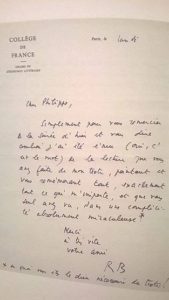 COLLÈGE
DE
FRANCE
CHAIRE DE
SÉMIOLOGIE LITTÉRAIRE
Paris, le lundi
Cher Philippe,
Simplement pour vous remercier
de la soirée d'hier et vous dire
combien j'ai été ému (oui, c'
est le mot) de la lecture que vous
avez faite de mon texte, pointant et
vous remémorant tout, exactement
tout ce qui m'importe, et que
vous seul avez vu, dans une complici-
té absolument miraculeuse*
Merci
à très vite
votre ami
RB